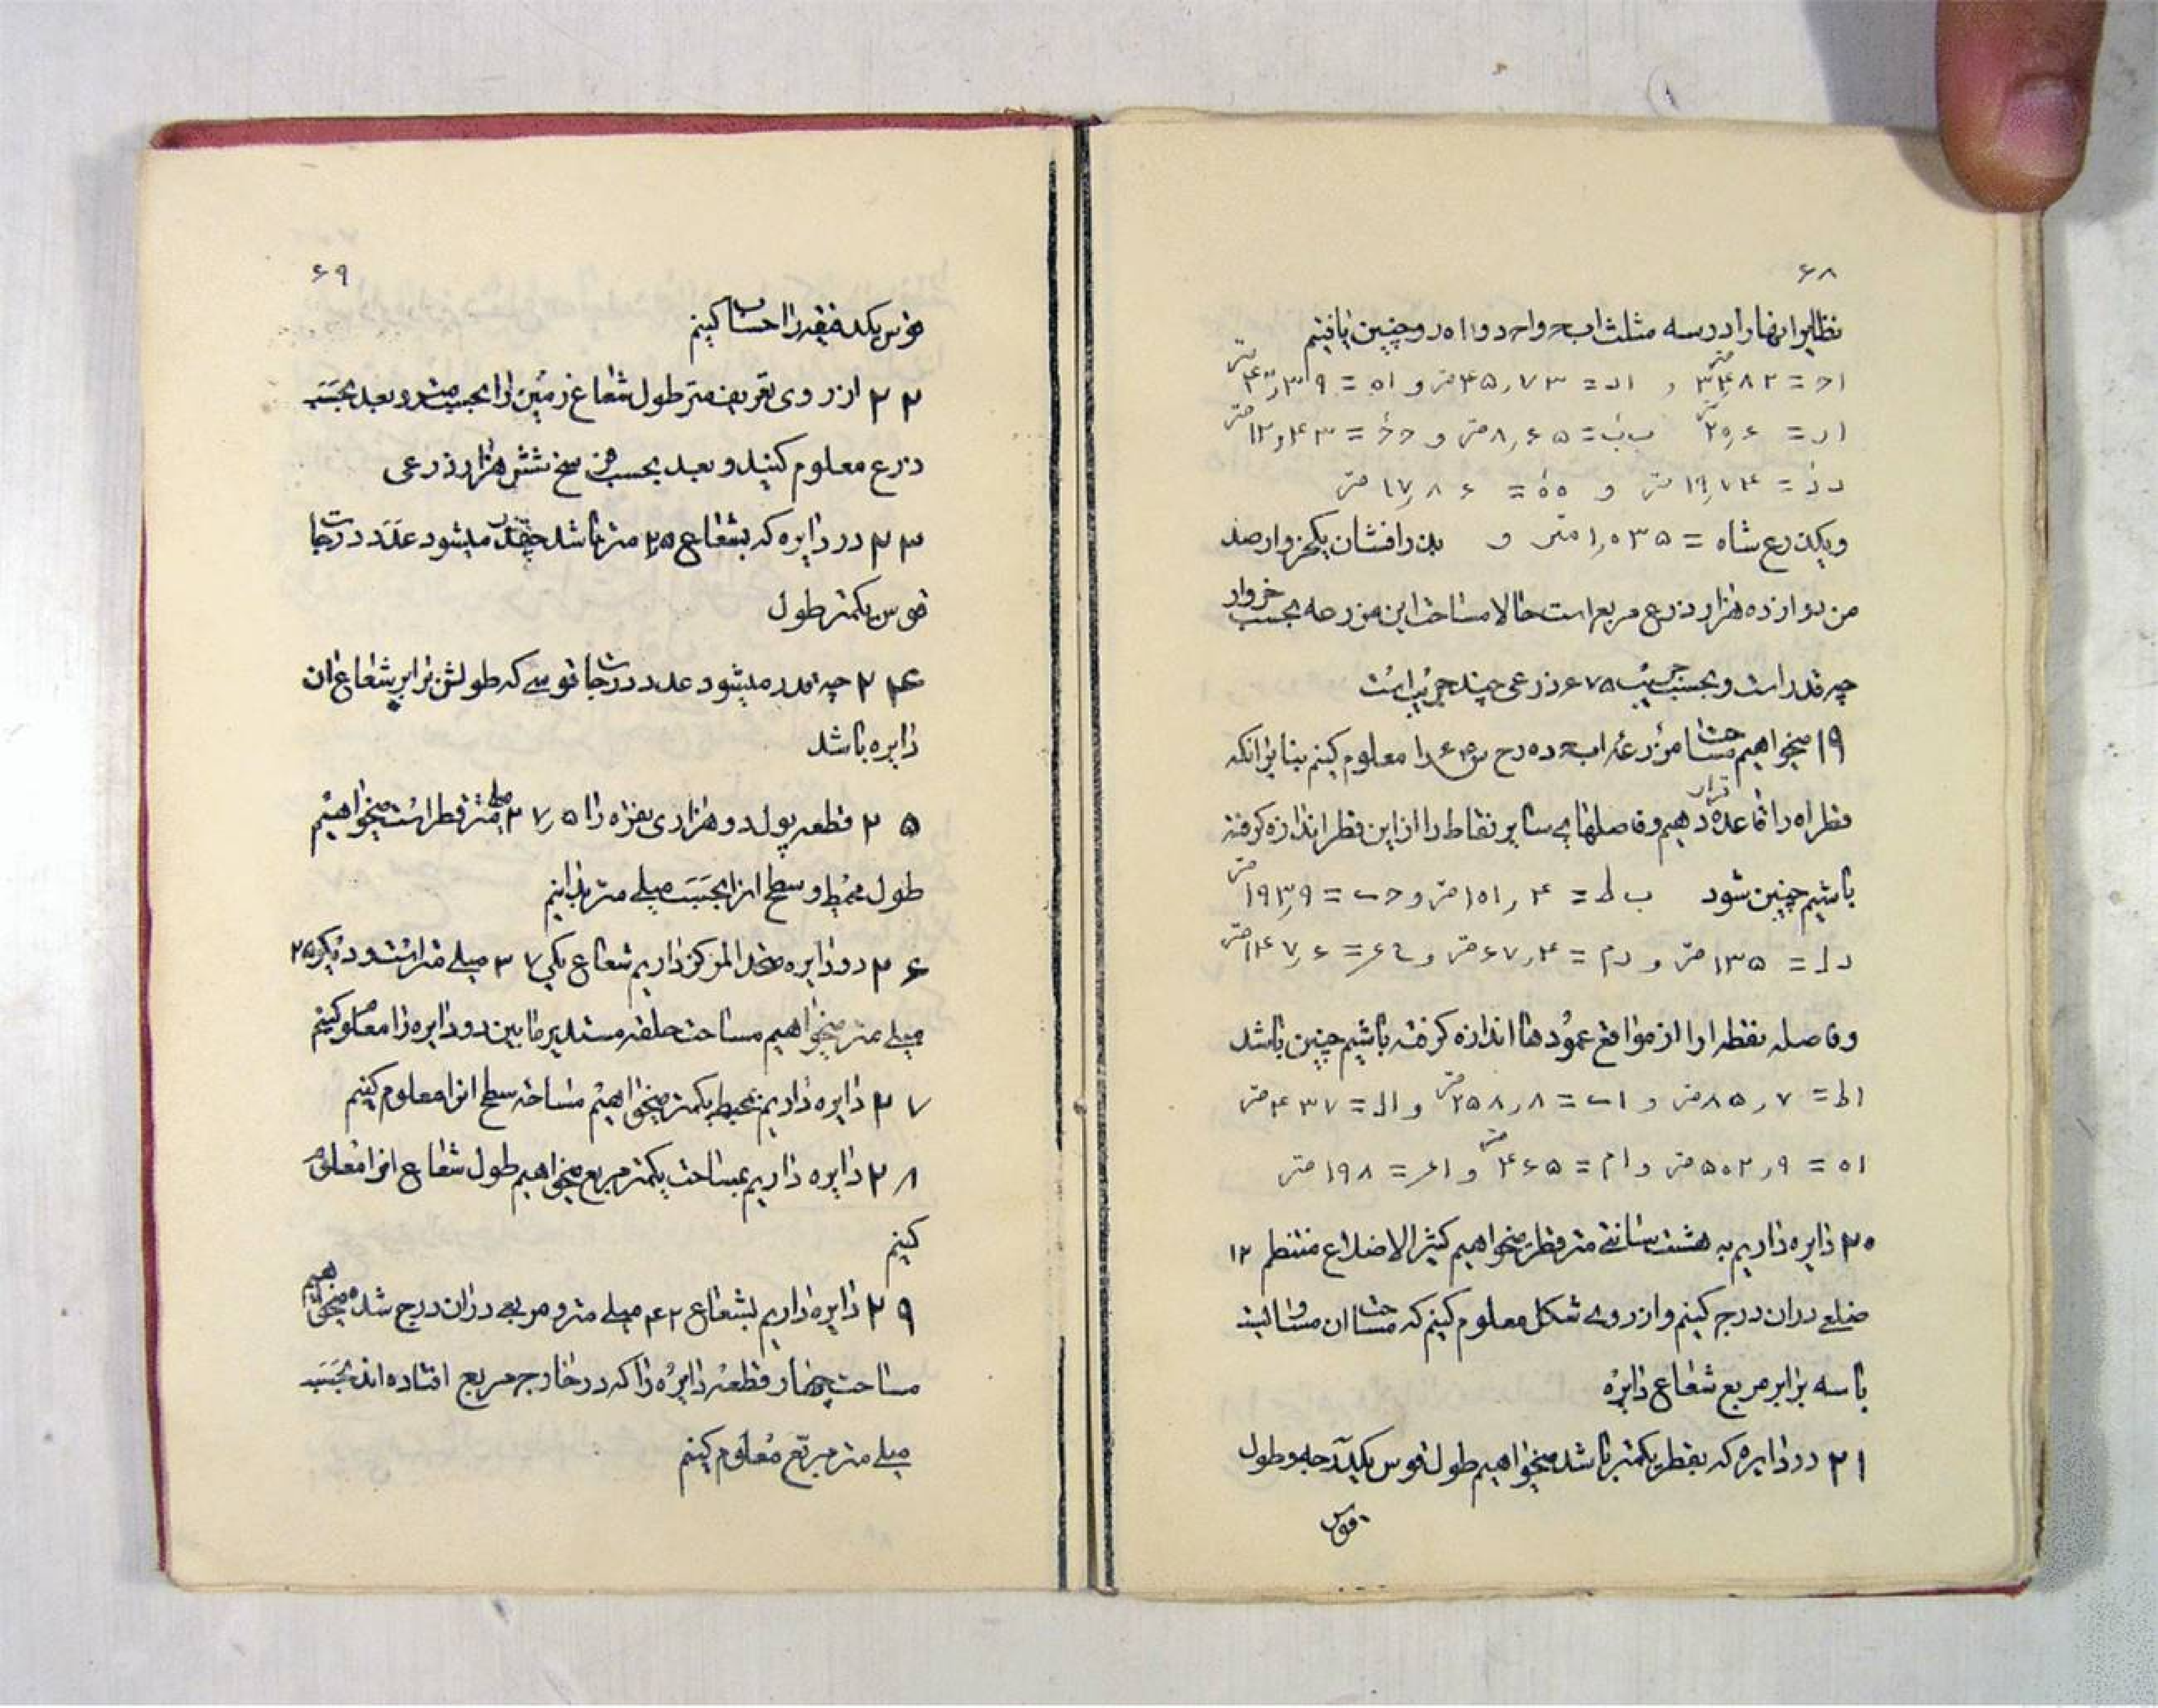 ۶۸
نظایر انها را در سه مثلث اب‌ح و اح‌د و اه‌ر و چنین یافتیم
اد = ۴۵٫۷۳ متر و اه =
ار = ۲۵٫۶ متر = ۸٫۶۵ متر و = ۱۲٫۴۳ متر
= ۱۹٫۷۴ متر و = ۱۷٫۸۶ متر
و یکذرع شاه = ۱٫۰۳۵ متر و بذرافشان یکخروار صد
من دوازده هزار ذرع مربع است حالا مساحت این مزرعه بحسب خروار
چه قدر است و بحسب جریب ۶۷۵ ذرعی چند جریب است
۱۹ میخواهیم مساحت مزرعه را معلوم کنیم بنا برانکه
قطر اه را قاعده قرار دهیم و فاصلهای سایر نقاط را از این قطر اندازه گرفته
باشیم چنین شود ب ط = ۱۵۱٫۴ متر و = ۱۹۳٫۹ متر
= ۱۳۵ متر و دم = ۶۷٫۴ متر و = ۱۴۷٫۶ متر
و فاصله نقطه ا را از مواقع عمودها اندازه گرفته باشیم چنین باشد
اط = ۸۵٫۷ متر و = ۲۵۸٫۸ متر و ال = ۴۳۷ متر
اه = ۵۰۲٫۹ متر و ام = ۴۶۵ متر و = ۱۹۸ متر
۲۰ دایره داریم به هشت سانتی متر قطر میخواهیم کثیر الاضلاع منتظم ۱۲
ضلعی دران درج کنیم و از روی شکل معلوم کنیم که مساحت ان مساویست
با سه برابر مربع شعاع دایره
۲۱ در دایره که بقطر یکمتر باشد میخواهیم طول قوس یکدرجه و طول
قوس
۶۹
قوس یکدقیقه را حساب کنیم
۲۲ از روی تعریف متر طول شعاع زمین را بحسب متر و بعد بحسب
ذرع معلوم کنید و بعد بحسب فرسخ شش هزار ذرعی
۲۳ در دایره که بشعاع ۲٫۵ متر باشد چقدر میشود عدد درجات
قوس یکمتر طول
۲۴ چه قدر میشود عدد درجات قوسی که طولش برابر شعاع ان
دایره باشد
۲۵ قطعه پول دو هزاری نقره را ۲۷٫۵ میلی متر قطر است میخواهیم
طول محیط و سطح انرا بحسب میلی متر بدانیم
۲۶ دو دایره متحد المرکز داریم شعاع یکی ۳۷ میلی متر است و دیگری ۲۵
میلی متر میخواهیم مساحت حلقه مستدیر مابین دو دایره را معلوم کنیم
۲۷ دایره داریم بمحیط یکمتر میخواهیم مساحت سطح انرا معلوم کنیم
۲۸ دایره داریم بمساحت یکمتر مربع میخواهیم طول شعاع انرا معلوم
کنیم
۲۹ دایره داریم بشعاع ۴۲ میلی متر و مربعی دران درج شده میخواهیم
مساحت چهار قطعه دایره را که در خارج مربع افتاده اند بحسب
میلی متر مربع معلوم کنیم